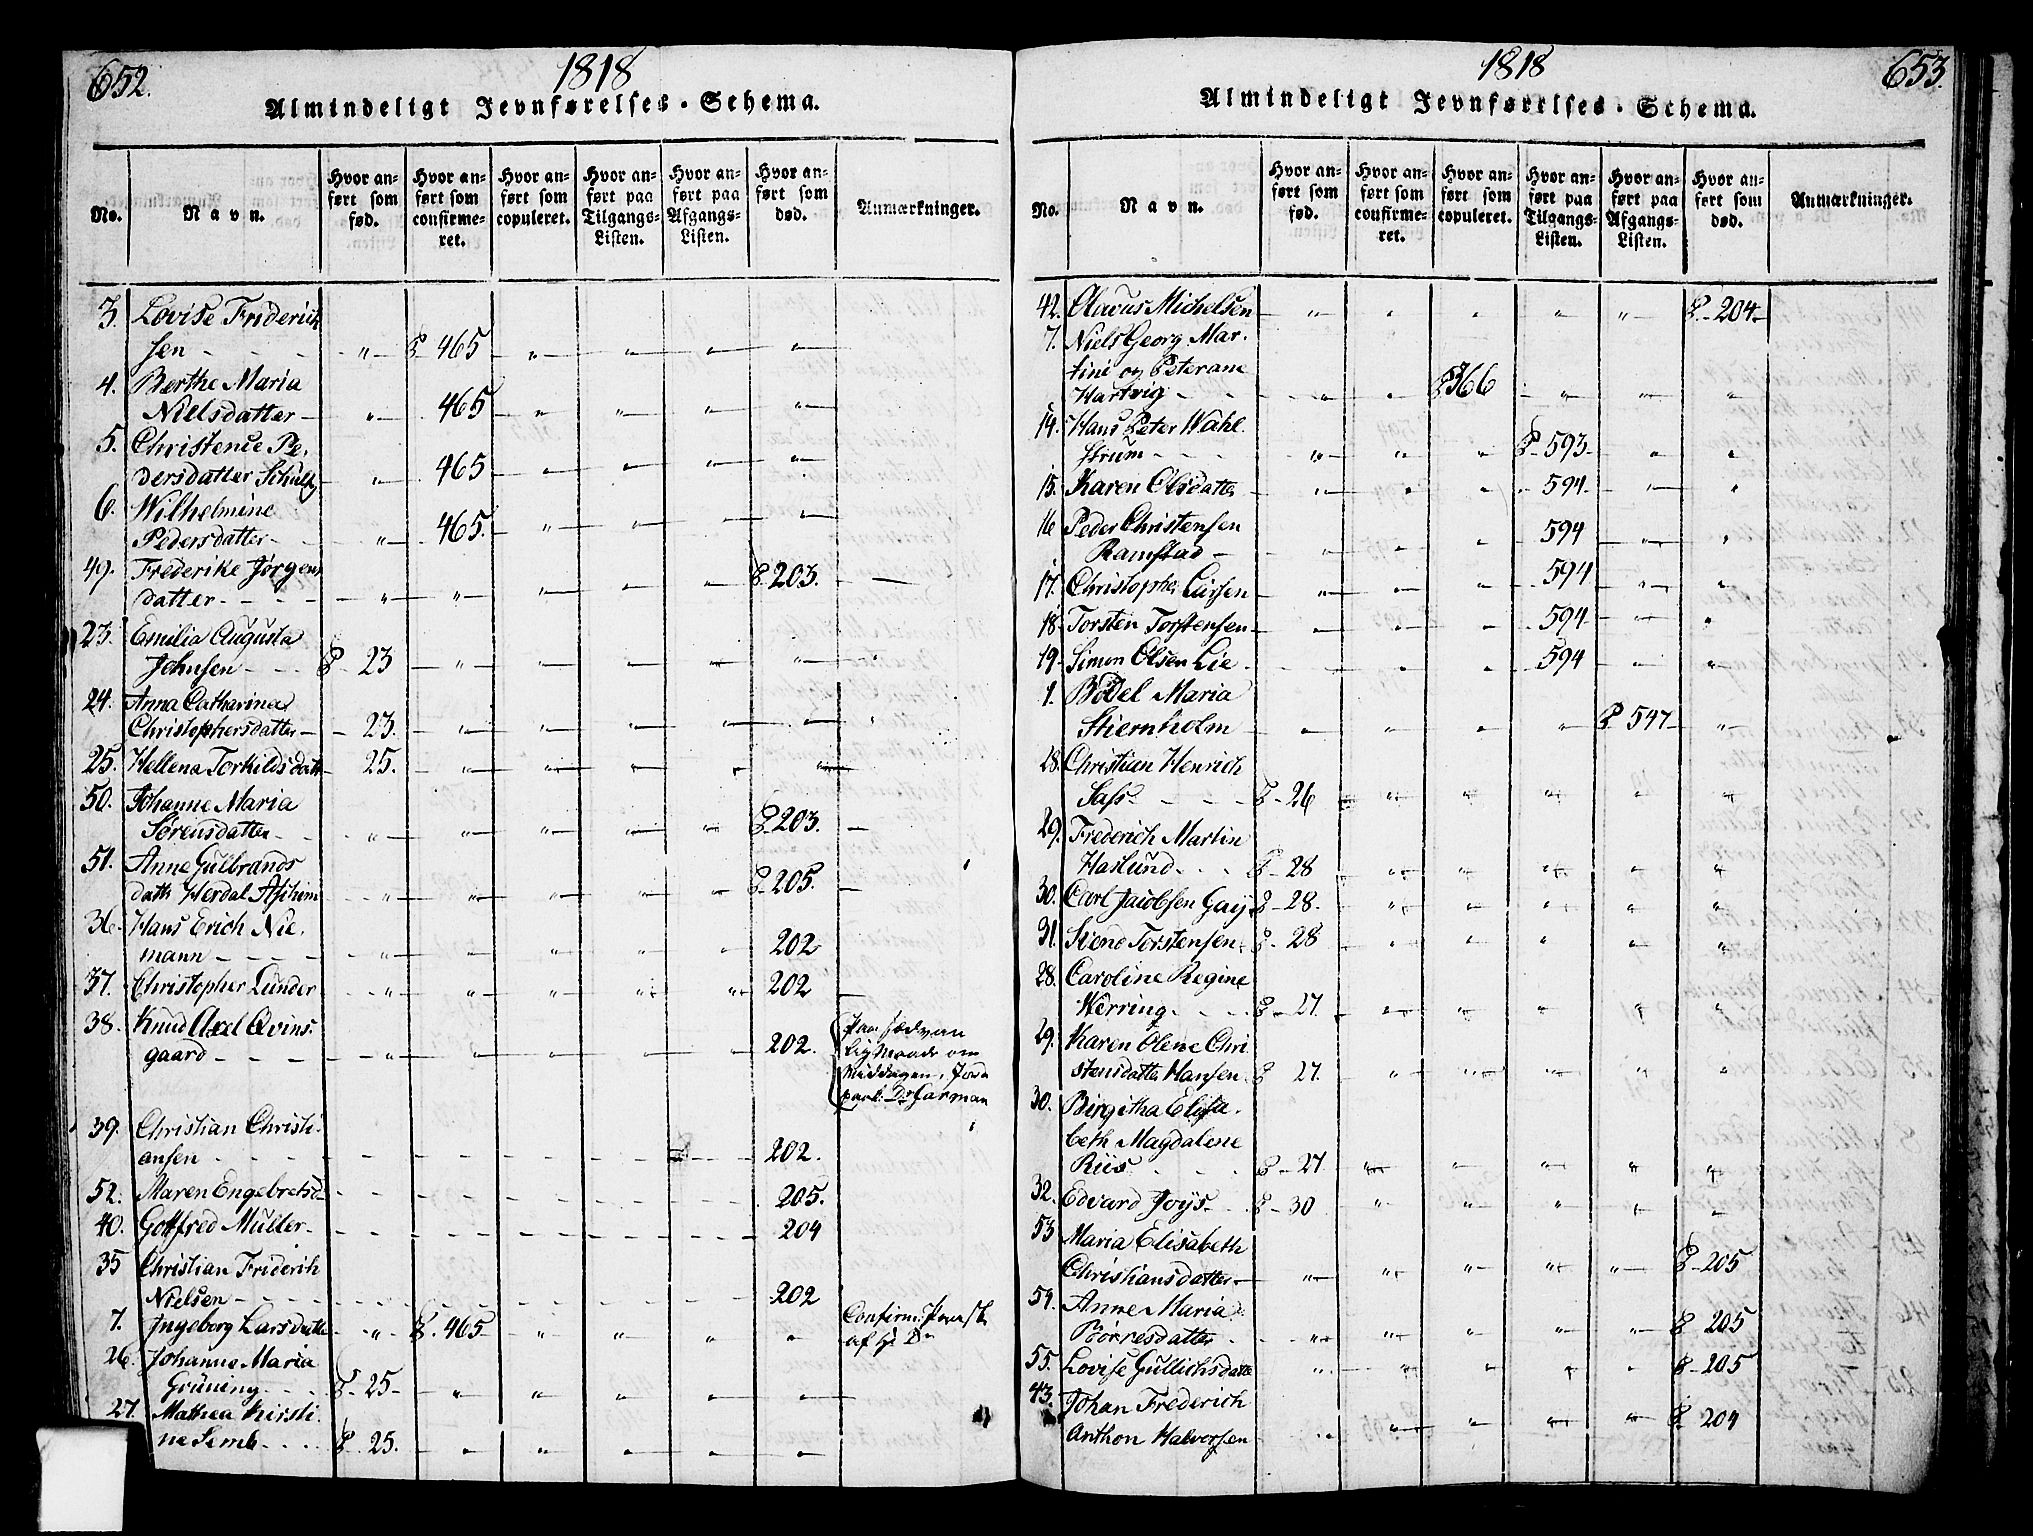 652.
1818
Almindeligt Jevnførelses-Schema.
No.
Navn.
Hvor anført som fød.
Hvor anført som confirmeret.
Hvor anført som copuleret.
Hvor anført paa Tilgangs-Listen.
Hvor anført paa Afgangs-Listen.
Hvor anført som død.
Anmærkninger.
3. Lovise Friderich
sen - - - " P. 465 " " " "
4. Berthe Maria
Nielsdatter - " 465 " " " "
5. Christence Pe-
dersdatter Schultz " 465 " " " "
6. Wilhelmine
Pedersdatter - " 465. " " " "
49. Frederike Jørgens
datter - - - " " " " " P. 203.
23. Emilia Augusta
Johnsen - - P. 23 " " " " "
24. Anna Catharina
Christophersdatter - 23. " " " " "
25. Hellena Torkildsdatt - 25. " " " " "
50. Johanne Maria
Sørensdatter - " " " " " P. 203.
51. Anne Gulbrands
datt Herdal Aschim " " " " " P. 205.
36. Hans Erich Nie-
mann - - - " " " " " 202
37. Christopher Lunder " " " " " 202
38. Knud Axel Qvins-
gaard - - - " " " " " 202.
39. Christian Christi-
ansen - - - 202.
52. Maren Engebretsd - - - 205.
40. Gottfred Muller - - - 204
35 Christian Friderich
Nielsen - - - 202
7. Ingeborg Larsdatte - " P. 465 " " " " Confirm.
26. Johanne Maria
Grüning - - P. 25 - " " " " "
27. Mathea Kirsti-
ne Semb - - P. 25. " " " " "
653.
1818
Almindeligt Jevnførelses-Schema.
No.
Navn.
Hvor anført som fød.
Hvor anført som confirmeret.
Hvor anført som copuleret.
Hvor anført paa Tilgangs-Listen.
Hvor anført paa Afgangs-Listen.
Hvor anført som død.
Anmærkninger.
42. Olavus Michelsen - " " " " " P. 204
7. Niels Georg Mar-
tini og Peterane
Hartvig - - " " P. 366 " " "
14. Hans Peter Wahl
strum - - - " " " P. 593 " "
15. Karen Olsdatter " " " 594 " "
16 Peder Christensen
Ramstad - " " " 594 " "
17. Christopher Larsen " " " 594 " "
18. Torsten Torstensen " " " 594 " "
19. Simon Olsen Lie - " " " 594 " "
1. Bodel Maria
Stiernholm - " " " " P. 547 "
28. Christian Henrich
Sass - - - P. 26 " " " " "
29. Frederich Martin
Haslund - - P. 28 " " " " "
30. Carl Jacobsen P. 28. " " " " "
31. Svend Torstensen P. 28 " " " " "
28. Caroline Regine
Werring - - P. 27. " " " " "
29. Karen Olene Chri
stensdatter Hansen P. 27. " " " " "
30. Birgitha Elisa-
beth Magdalene
Riis - - - P. 27 " " " " "
32. Edvard Joÿs - P. 30 " " " " "
53 Maria Elisabeth
Christiansdatter " " " " " P. 205
54. Anne Maria
Börresdatter - " " " " " P. 205
55. Lovise Gullichsdatte " " " " " P. 205
43. Johan Frederich
Anthon Halvorsen " " " " " P. 204